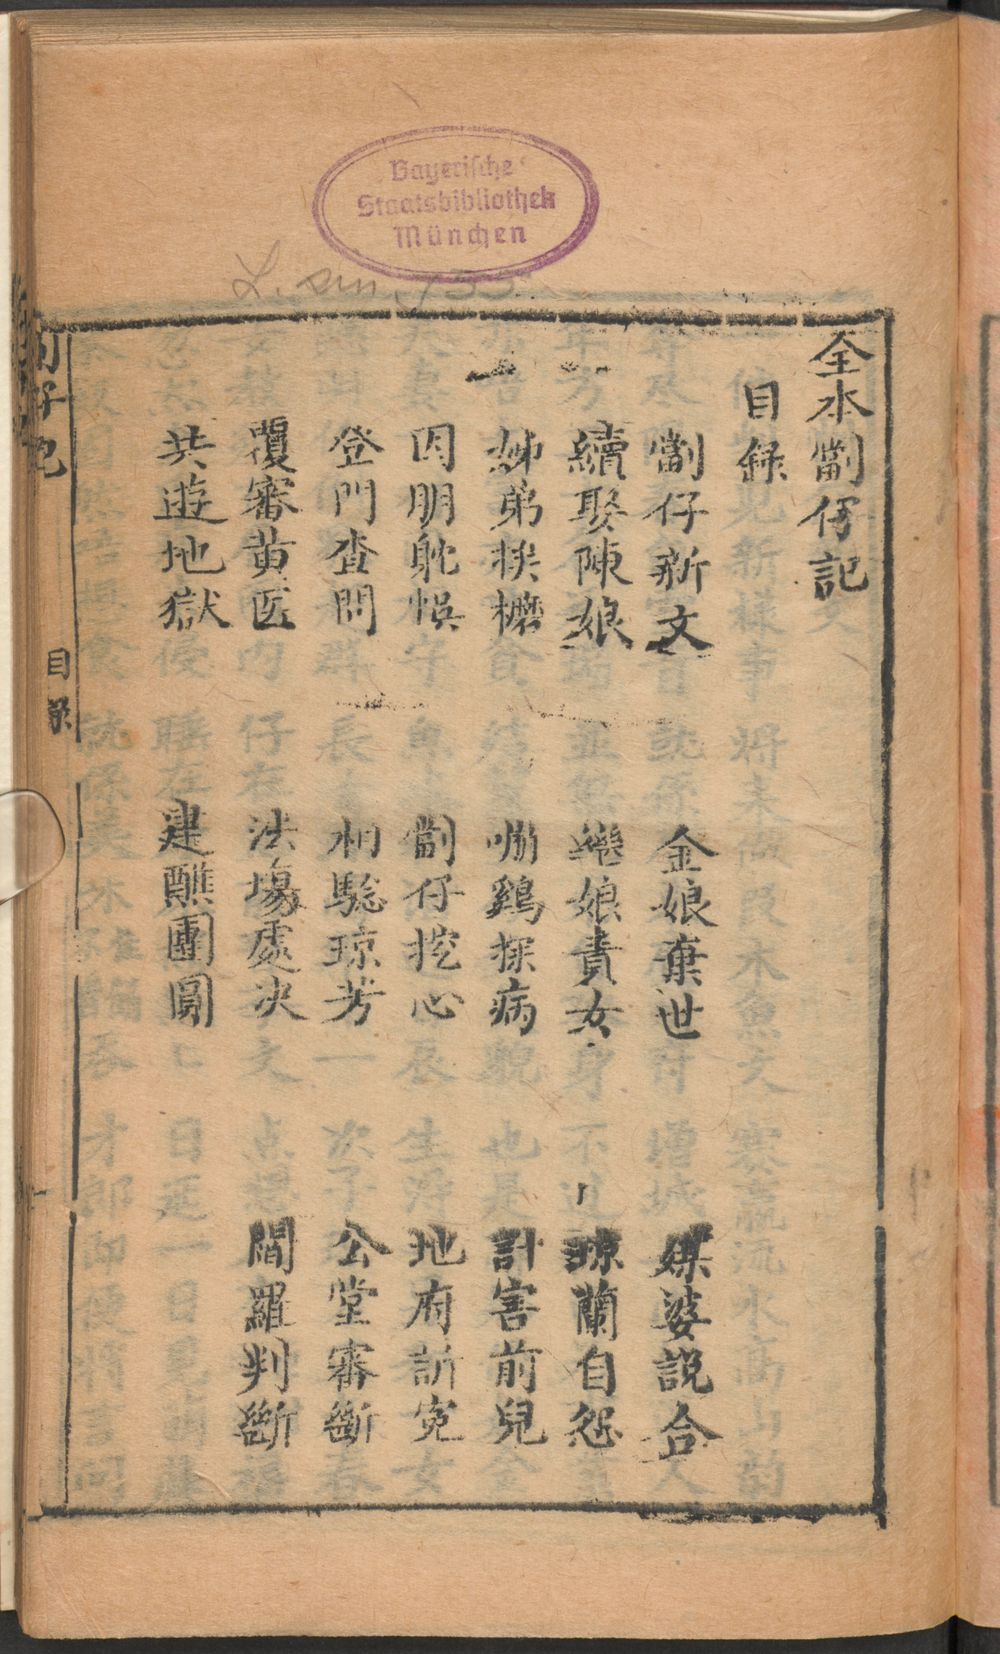 Bayerische
Staatsbibliothek
München
L. sin.
全本劏仔記
目錄
劏仔新文 金娘棄世 媒婆説合
續娶陳娘 繼娘責女 琼蘭自怨
姊弟挨磨 嘞鷄探病 計害前兒
因朋躭悞 劏仔挖心 地府訴冤
登門查問 相騐琼芳 公堂審斷
覆審黄医 法場處决 閻羅判斷
共遊地獄 建醮團圓
目录